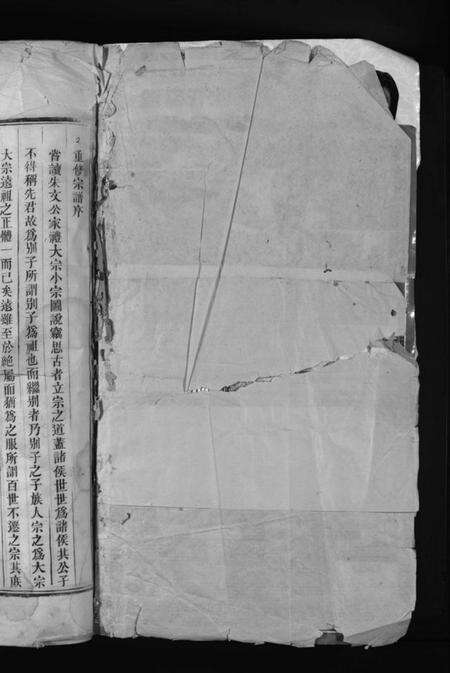 重修宗譜序
嘗讀朱文公家禮大宗小宗圖說竊思古者立宗之道蓋諸侯世世爲諸侯其公子
不得稱先君故爲別子所謂別子爲祖也而繼別者乃別子之子族人宗之爲大宗
大宗遠祖之正體一而已矣遠雖至於絕屬而猶爲之服所謂百世不遷之宗其庶